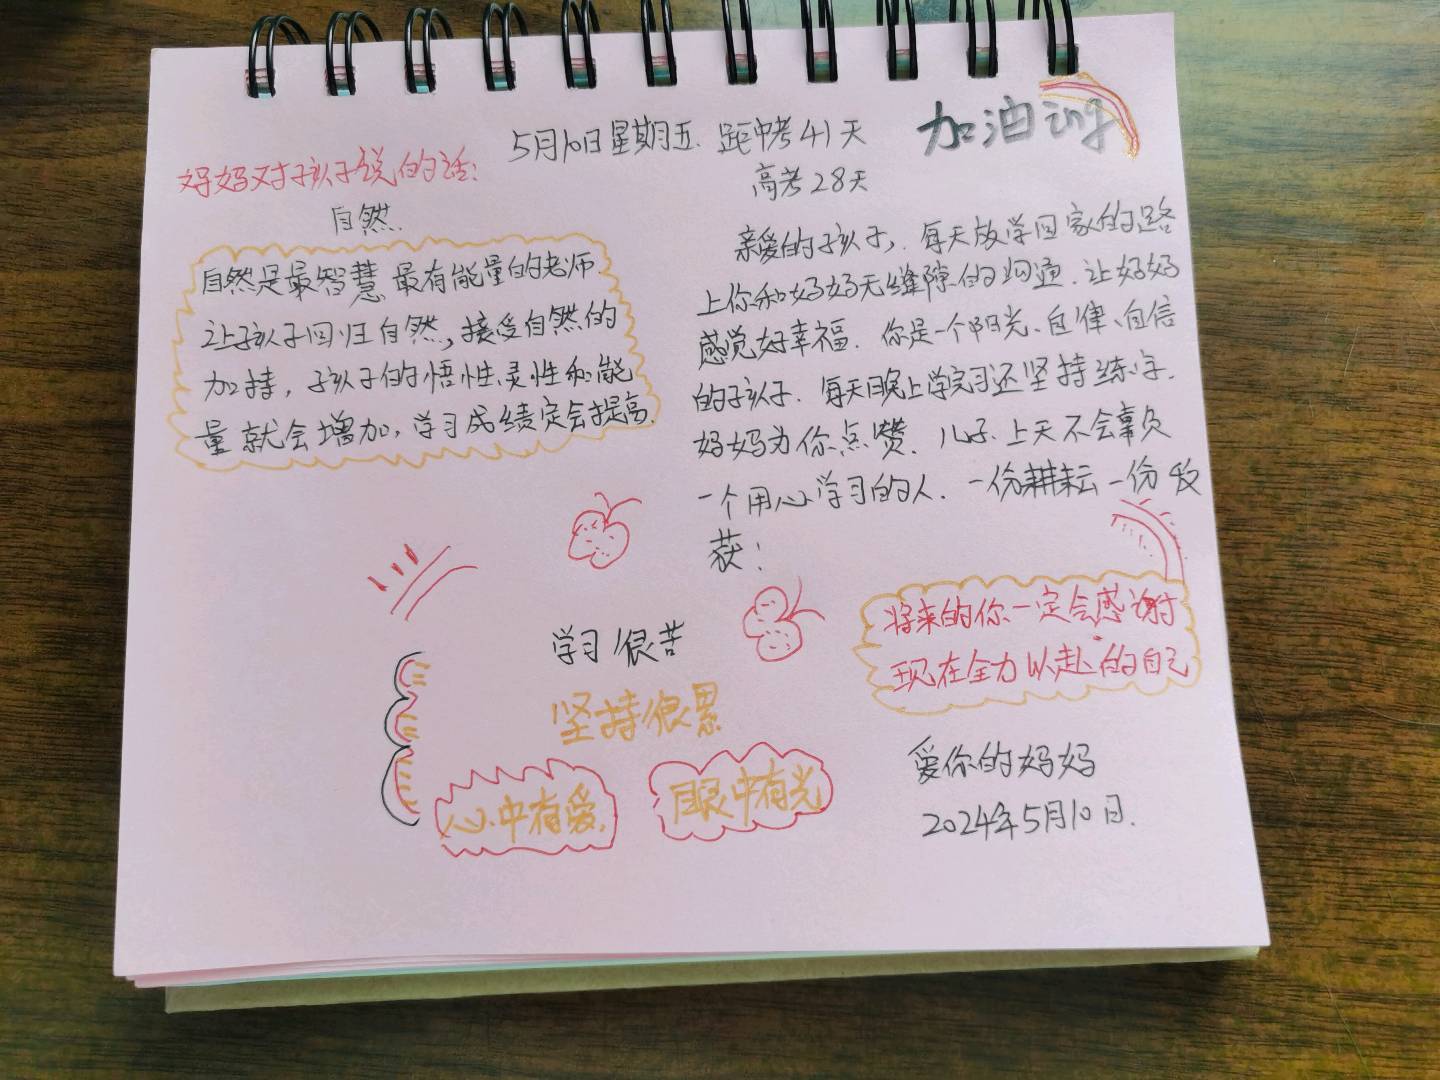 5月10日星期五. 距中考41天
高考28天
加油
好妈对孩子说的话:
自然.
自然是最智慧 最有能量的老师.
让孩子回归自然,接受自然的
加持,孩子的悟性、灵性和能
量就会增加,学习成绩定会提高.
亲爱的孩子,每天放学回家的路
上你和妈妈无缝隙的沟通.让妈妈
感觉好幸福.你是一个阳光、自律、自信
的孩子.每天晚上学完习还坚持练字.
妈妈为你点赞.儿子.上天不会辜负
一个用心学习的人.一份耕耘一份收
获!
将来的你一定会感谢
现在全力以赴的自己
学习很苦
坚持很累
心中有爱.
眼中有光
爱你的妈妈
2024年5月10日.